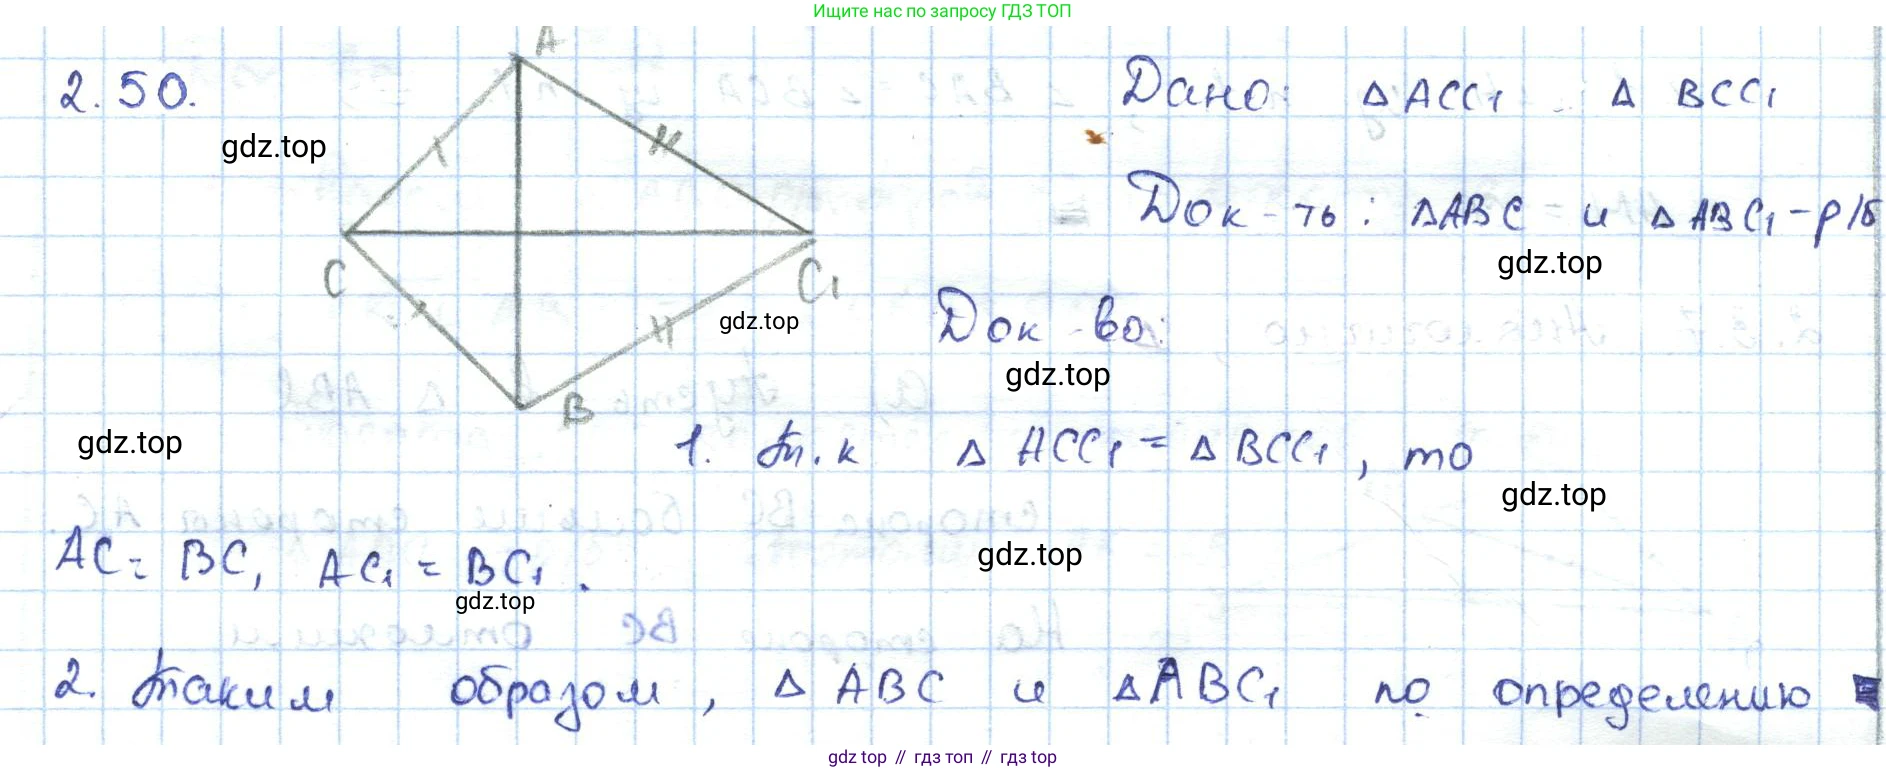 Ищите нас по запросу ГДЗ ТОП
2.50.
A
Дано: △ ACC₁ △ BCC₁
gdz.top
Док-ть: △ABC и △ABC₁ – р/б
gdz.top
C
C₁
gdz.top
Док-во:
gdz.top
B
gdz.top
1. Т.к △ ACC₁ = △ BCC₁, то
gdz.top
AC = BC, AC₁ = BC₁.
gdz.top
gdz.top
2. Таким образом, △ ABC и △ABC₁ по определению
gdz.top // гдз топ // гдз top